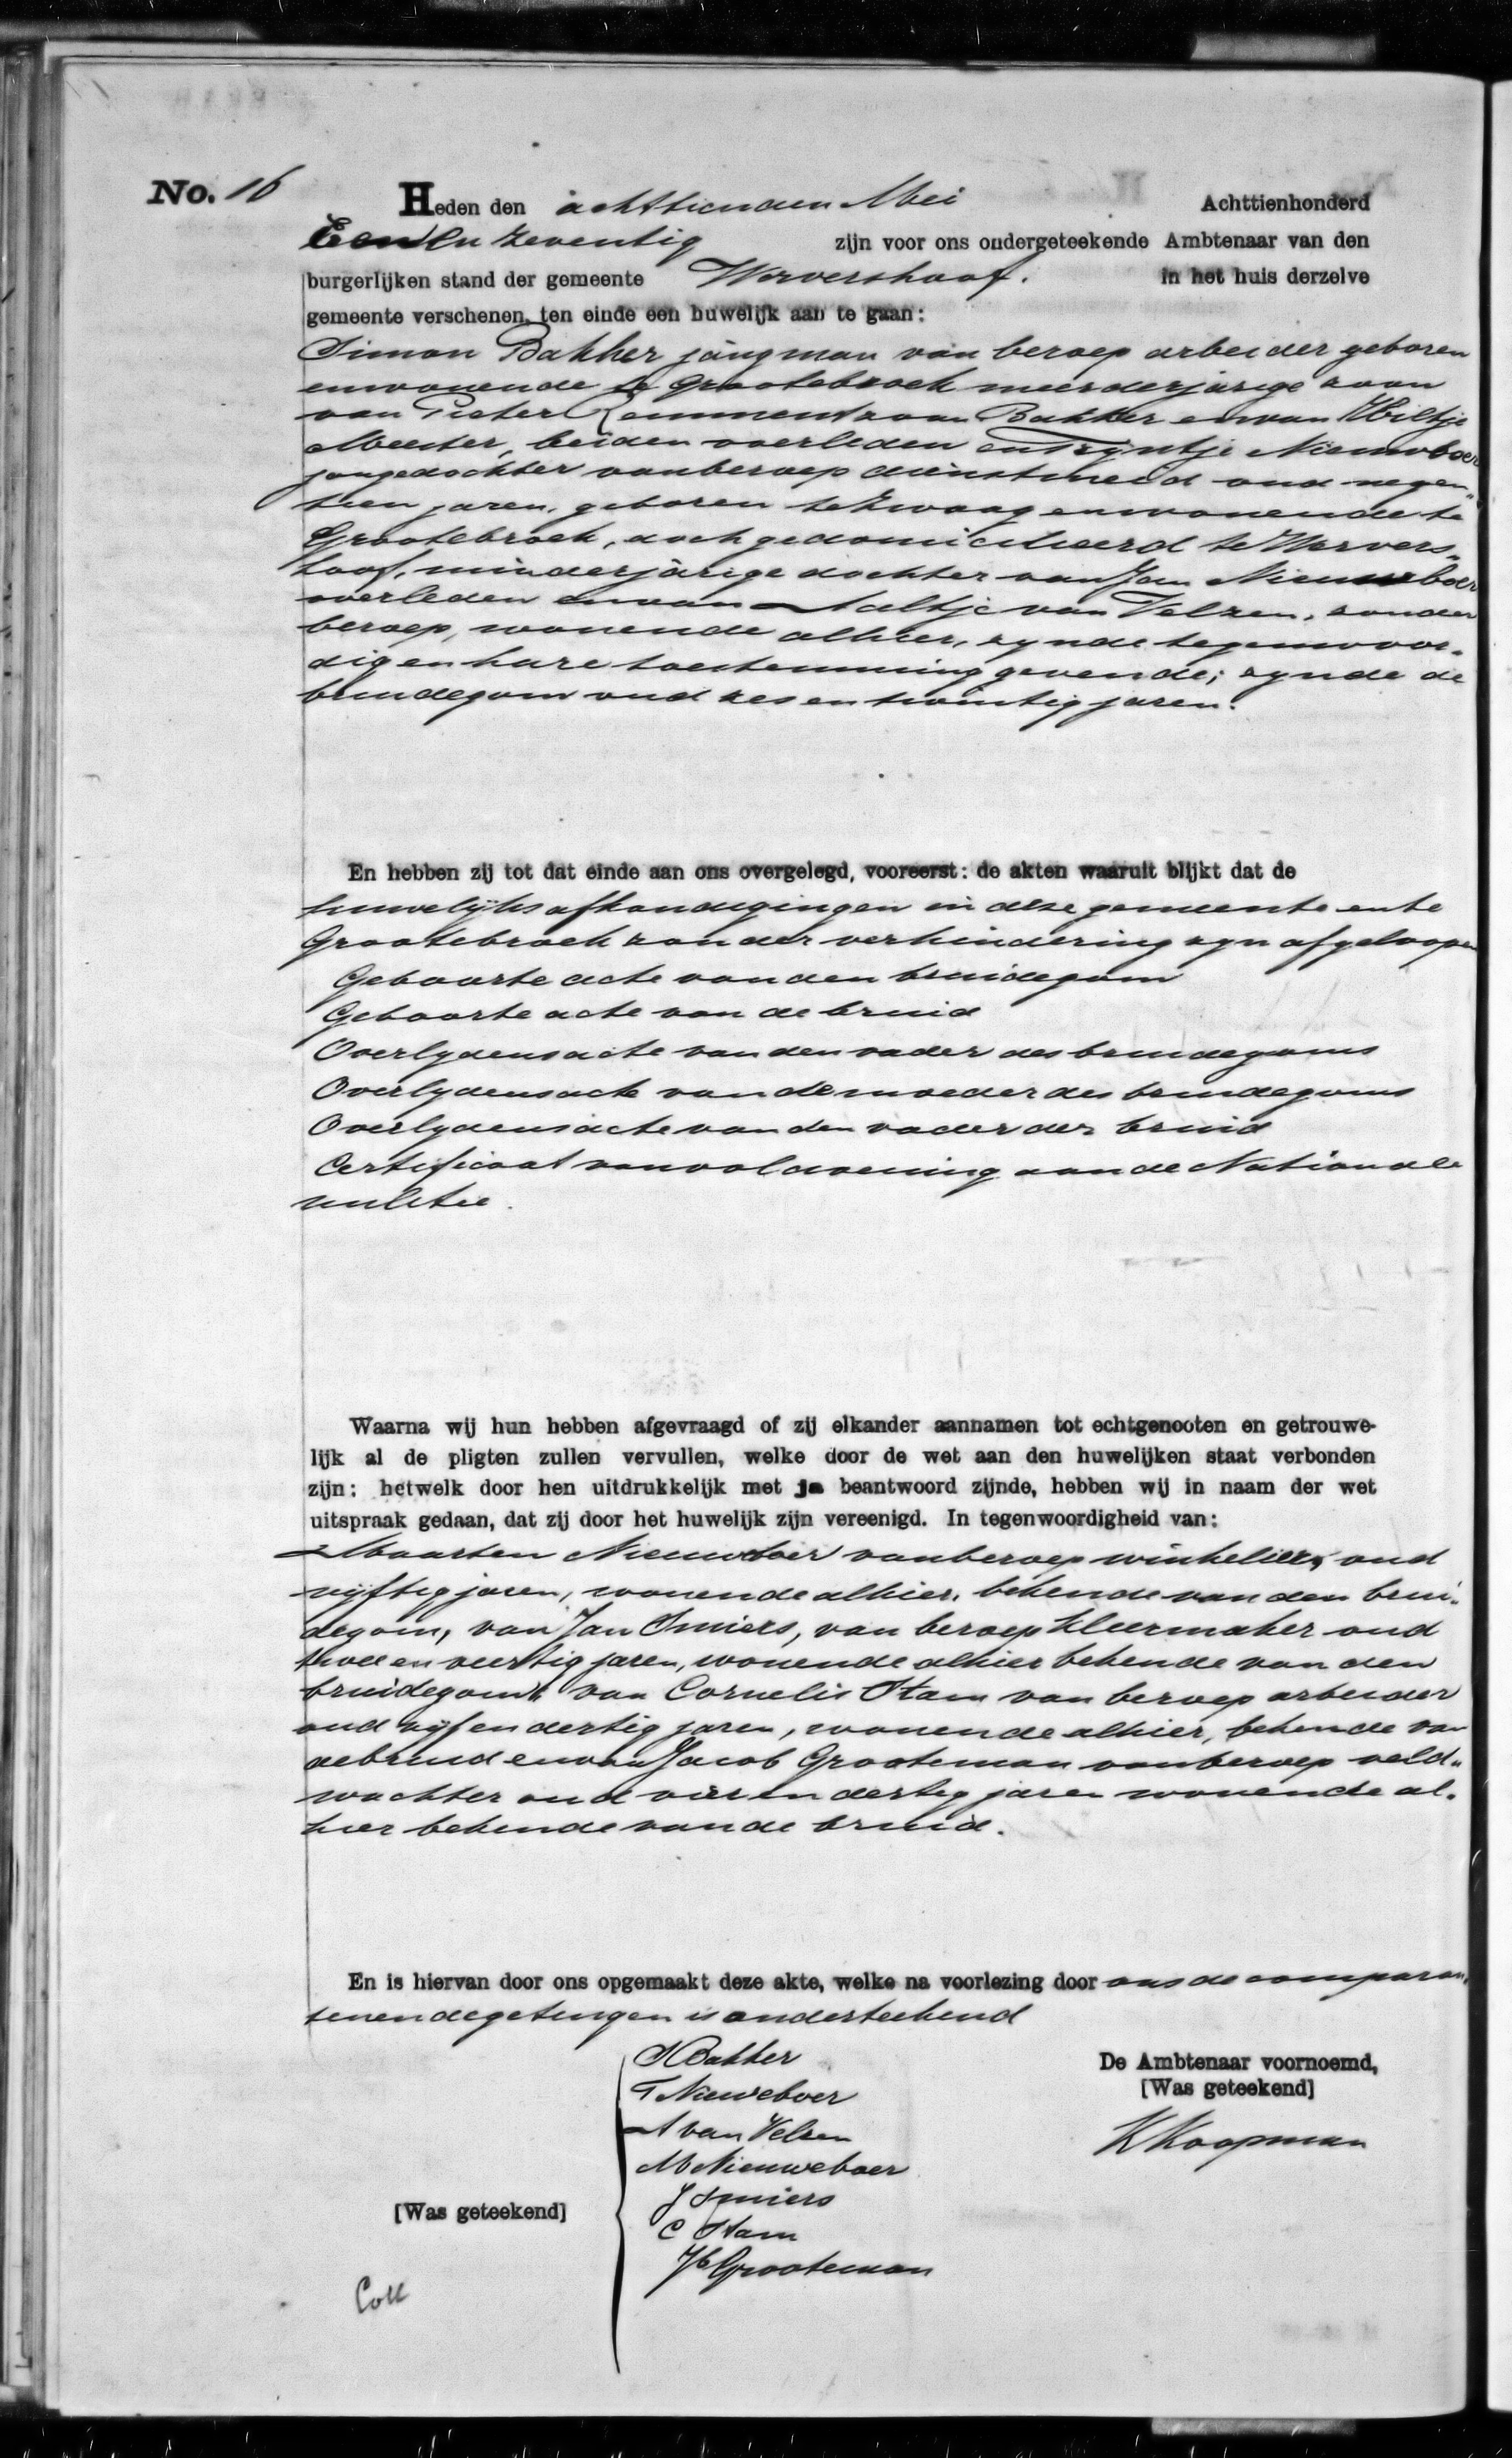 No. 16
Heden den achttienden Mei Achttienhonderd
Een en zeventig zijn voor ons ondergeteekende Ambtenaar van den
burgerlijken stand der gemeente Wervershoof. in het huis derzelve
gemeente verschenen, ten einde een huwelijk aan te gaan:
Simon Bakker jongman van beroep arbeider geboren
en wonende te Grootebroek meerderjarige zoon
van Pieter Remmentzoon Bakker en van Hiltje
Meester, beiden overleden en Trijntje Nieuweboer
jongedochter van beroep dienstmeid oud negen-
tien jaren, geboren te Zwaag en wonende te
Grootebroek, doch gedomicilieerd te Wervers-
hoof, minderjarige dochter van Jan Nieuweboer
overleden en van Aaltje van Velzen, zonder
beroep, wonende alhier, zynde tegenwoor-
dig en hare toestemming gevende; zynde de
bruidegom oud zes en twintig jaren.
En hebben zij tot dat einde aan ons overgelegd, vooreerst: de akten waaruit blijkt dat de
huwelijks afkondigingen in deze gemeente en te
Grootebroek zonder verhindering zyn afgeloopen
Geboorte acte van den bruidegom
Geboorte acte van de bruid
Overlydensacte van den vader des bruidegoms
Overlydensacte van de moeder des bruidegoms
Overlydensacte van den vader der bruid
Certificaat van voldoening aan de Nationale
militie.
Waarna wij hun hebben afgevraagd of zij elkander aannamen tot echtgenooten en getrouwe-
lijk al de pligten zullen vervullen, welke door de wet aan den huwelijken staat verbonden
zijn: hetwelk door hen uitdrukkelijk met ja beantwoord zijnde, hebben wij in naam der wet
uitspraak gedaan, dat zij door het huwelijk zijn vereenigd. In tegenwoordigheid van:
Maarten Nieuweboer van beroep winkelier, oud
vijftig jaren, wonende alhier, bekende van den brui-
degom, van Jan Smiers, van beroep kleermaker oud
twee en veertig jaren, wonende alhier bekende van den
bruidegom, van Cornelis Stam van beroep arbeider
oud vijf en dertig jaren, wonende alhier, bekende van
de bruid en van Jacob Grooteman van beroep veld-
wachter oud vier en dertig jaren wonende al-
hier bekende van de bruid.
En is hiervan door ons opgemaakt deze akte, welke na voorlezing door ons de comparan-
ten en de getuigen is onderteekend
S Bakker
T Nieuweboer
A van Velzen
M Nieuweboer
J Smiers
C Stam
Jb Grooteman
[Was geteekend]
De Ambtenaar voornoemd,
[Was geteekend]
K Koopman
Coll